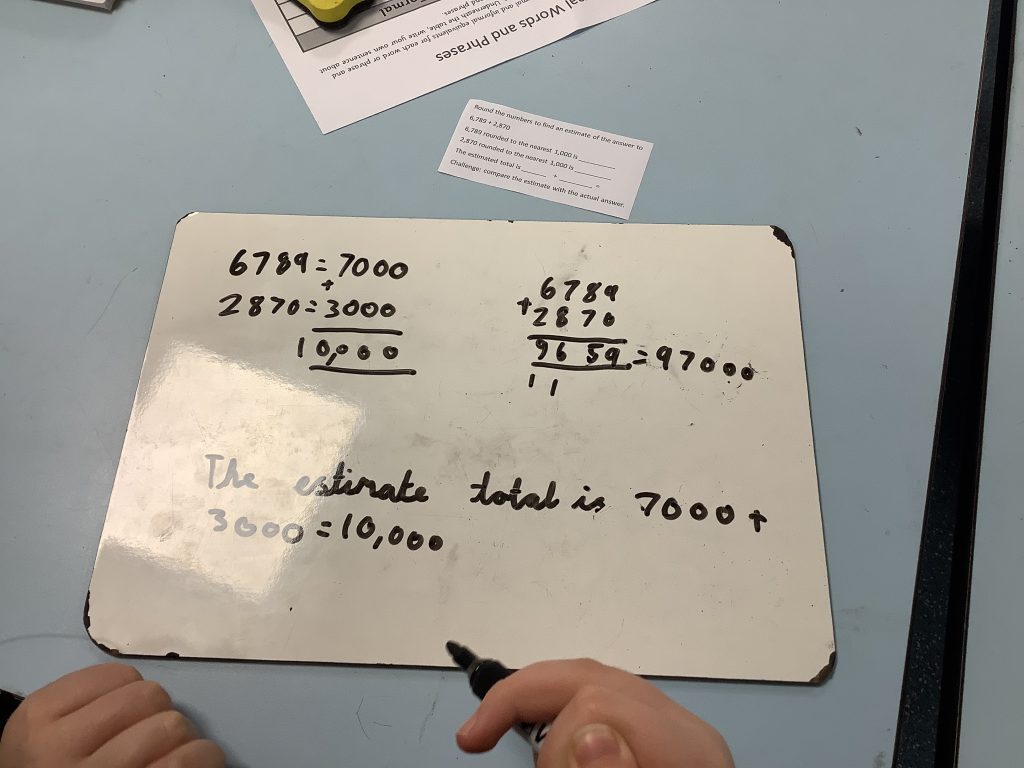 nal Words and Phrases
mal and informal equivalents for each word or phrase and
Underneath the table, write your own sentence about
d phrases.
ormal
Round the numbers to find an estimate of the answer to
6,789 + 2,870
6,789 rounded to the nearest 1,000 is
2,870 rounded to the nearest 1,000 is
The estimated total is + =
Challenge: compare the estimate with the actual answer.
6789 = 7000
+
2870 = 3000
10,000
6789
+ 2870
9659 = 97000
1 1
The estimate total is 7000 +
3000 = 10,000